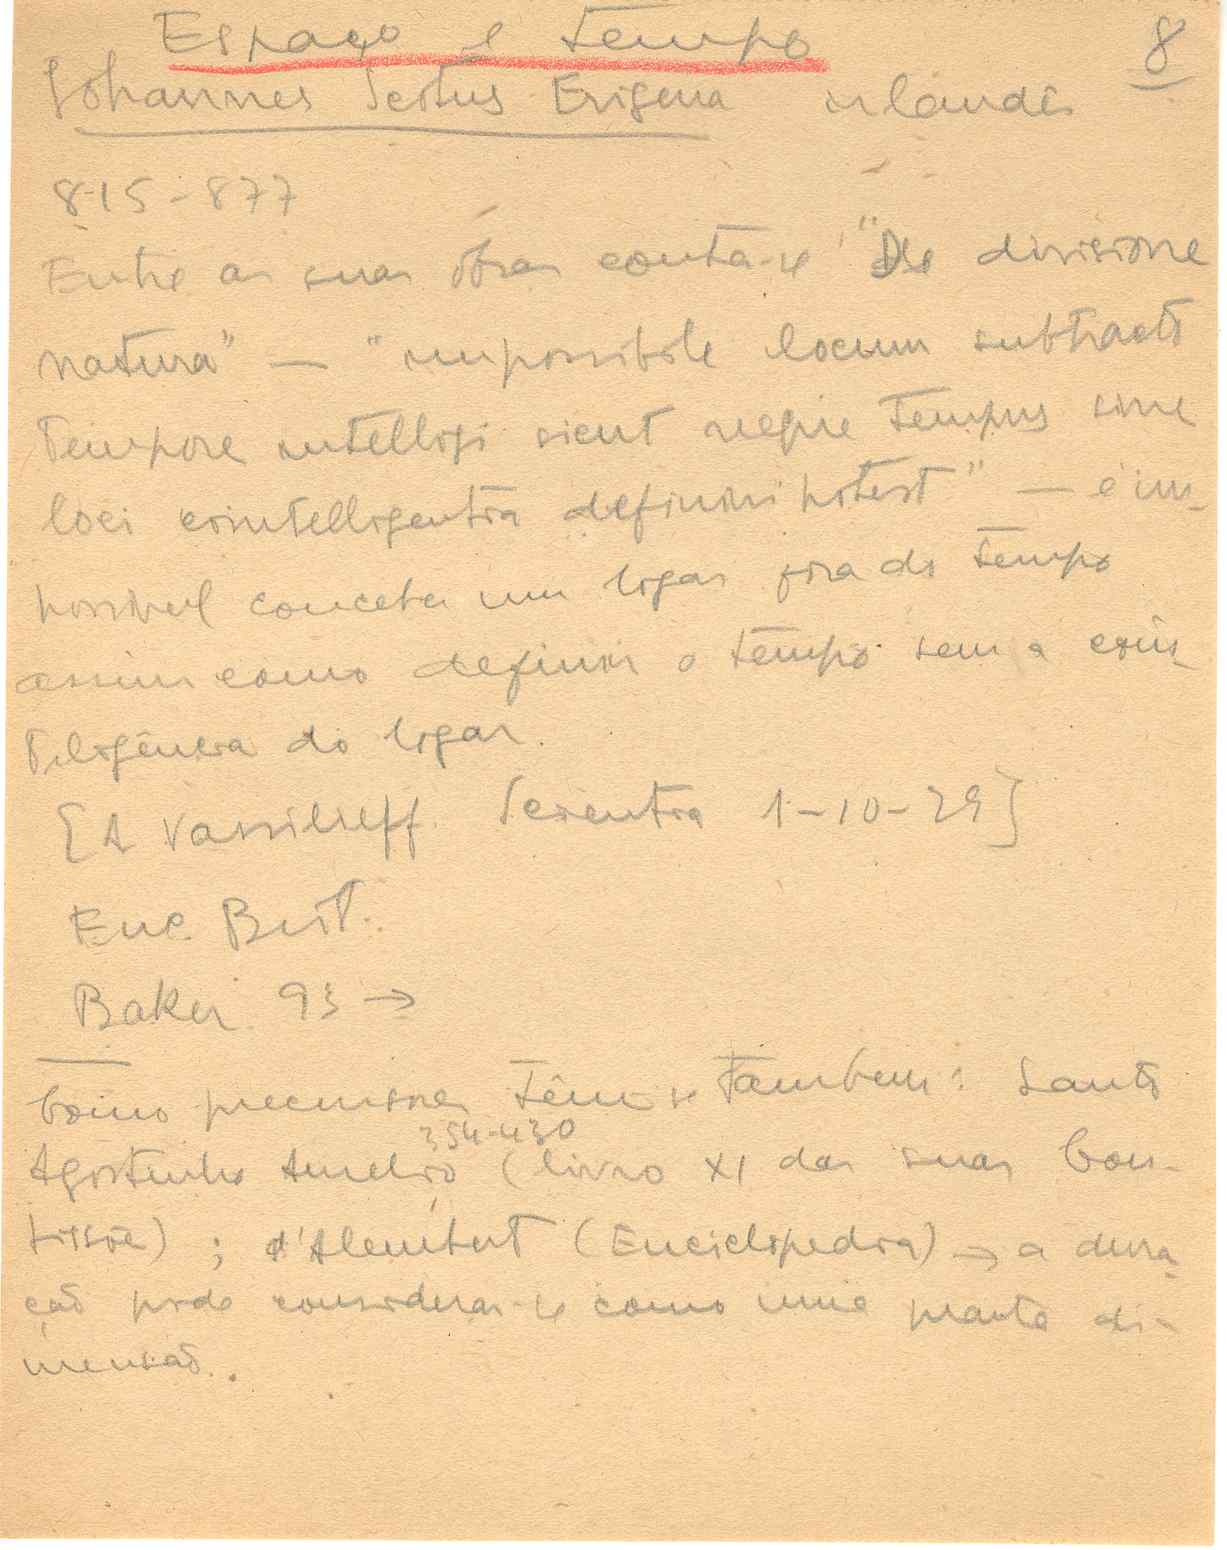 Espaço e tempo 8
Johannes Scotus Erigena irlandês
815-877
Entre as suas obras conta-se "De divisione
natura" — "impossibile locum subtracto
tempore intelligi sicut neque tempus sine
loci cointelligentia definiri potest" — é im-
possivel conceber um logar fora do tempo
assim como definir o tempo sem a coin-
teligência do logar.
[A Vassilieff. Scientia 1-10-29]
Enc. Brit.
Baker 93 →
Como precursores têm-se tambem: Santo
354-430
Agostinho Aurelio (livro XI das suas Con-
fissões) ; d'Alembert (Enciclopedia) → a dura-
ção pode considerar-se como uma quarta di-
mensão.